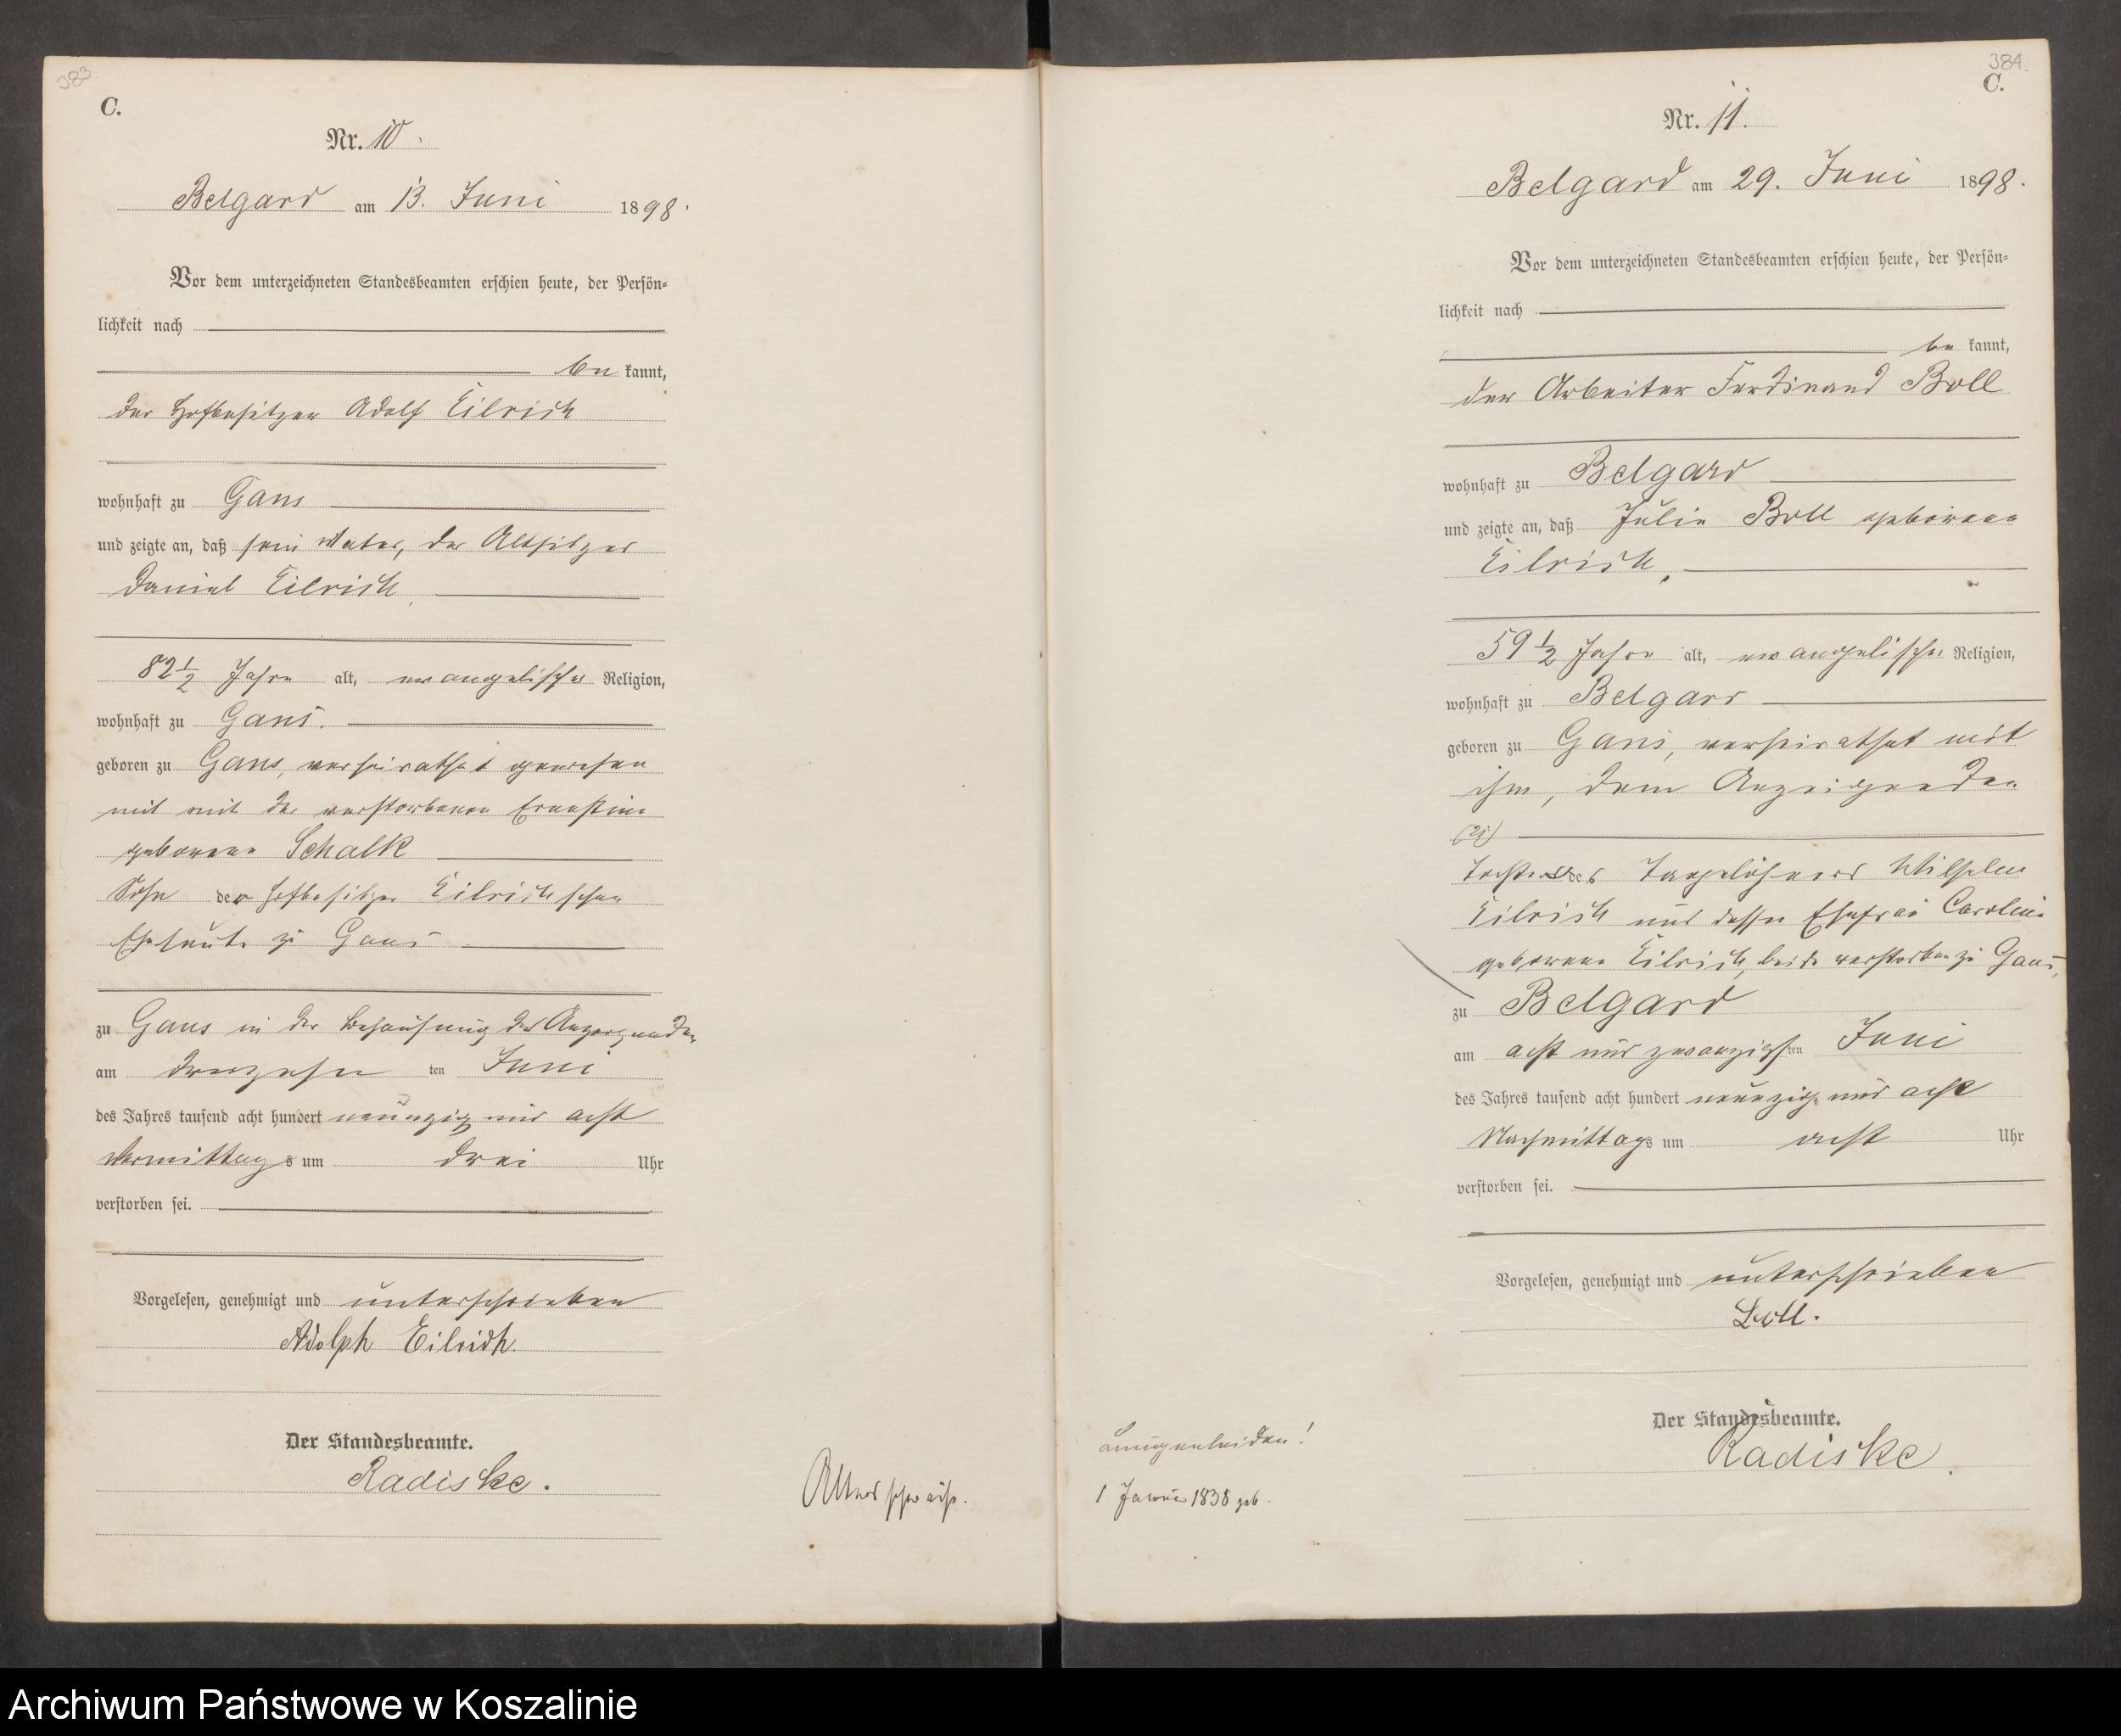 383.
C.
Nr. 10.
Belgard am 13. Juni 1898.
Vor dem unterzeichneten Standesbeamten erschien heute, der Persön-
lichkeit nach
be kannt,
der Hofbesitzer Adolf Eilrich
wohnhaft zu Gans
und zeigte an, daß sein Vater, der Altsitzer
Daniel Eilrich
82 1/2 Jahre alt, evangelischer Religion,
wohnhaft zu Gans.
geboren zu Gans, verheirathet gewesen
mit mit der verstorbenen Ernestine
geborene Schalk
Sohn der Hofbesitzer Eilrichschen
Eheleute zu Gans
zu Gans in der Behausung des Anzeigenden
am dreizehn ten Juni
des Jahres tausend acht hundert neunzig und acht
Vormittags um drei Uhr
verstorben sei.
Vorgelesen, genehmigt und unterschrieben
Adolph Eilrich.
Der Standesbeamte.
Radiske.
Altersschwäche.
384.
C.
Nr. 11.
Belgard am 29. Juni 1898.
Vor dem unterzeichneten Standesbeamten erschien heute, der Persön-
lichkeit nach
be kannt,
der Arbeiter Ferdinand Boll
wohnhaft zu Belgard
und zeigte an, daß Julie Boll geborene
Eilrich,
59 1/2 Jahre alt, evangelischer Religion,
wohnhaft zu Belgard
geboren zu Gans, verheirathet mit
ihm, dem Anzeigenden
Tochter des Tagelöhners Wilhelm
Eilrich und dessen Ehefrau Caroline
geborene Eilrich, beide verstorben zu Gans,
zu Belgard
am acht und zwanzigsten Juni
des Jahres tausend acht hundert neunzig und acht
Nachmittags um acht Uhr
verstorben sei.
Vorgelesen, genehmigt und unterschrieben
Boll.
Der Standesbeamte.
Radiske.
Lungenleiden!
1 Januar 1838 geb.
Archiwum Państwowe w Koszalinie